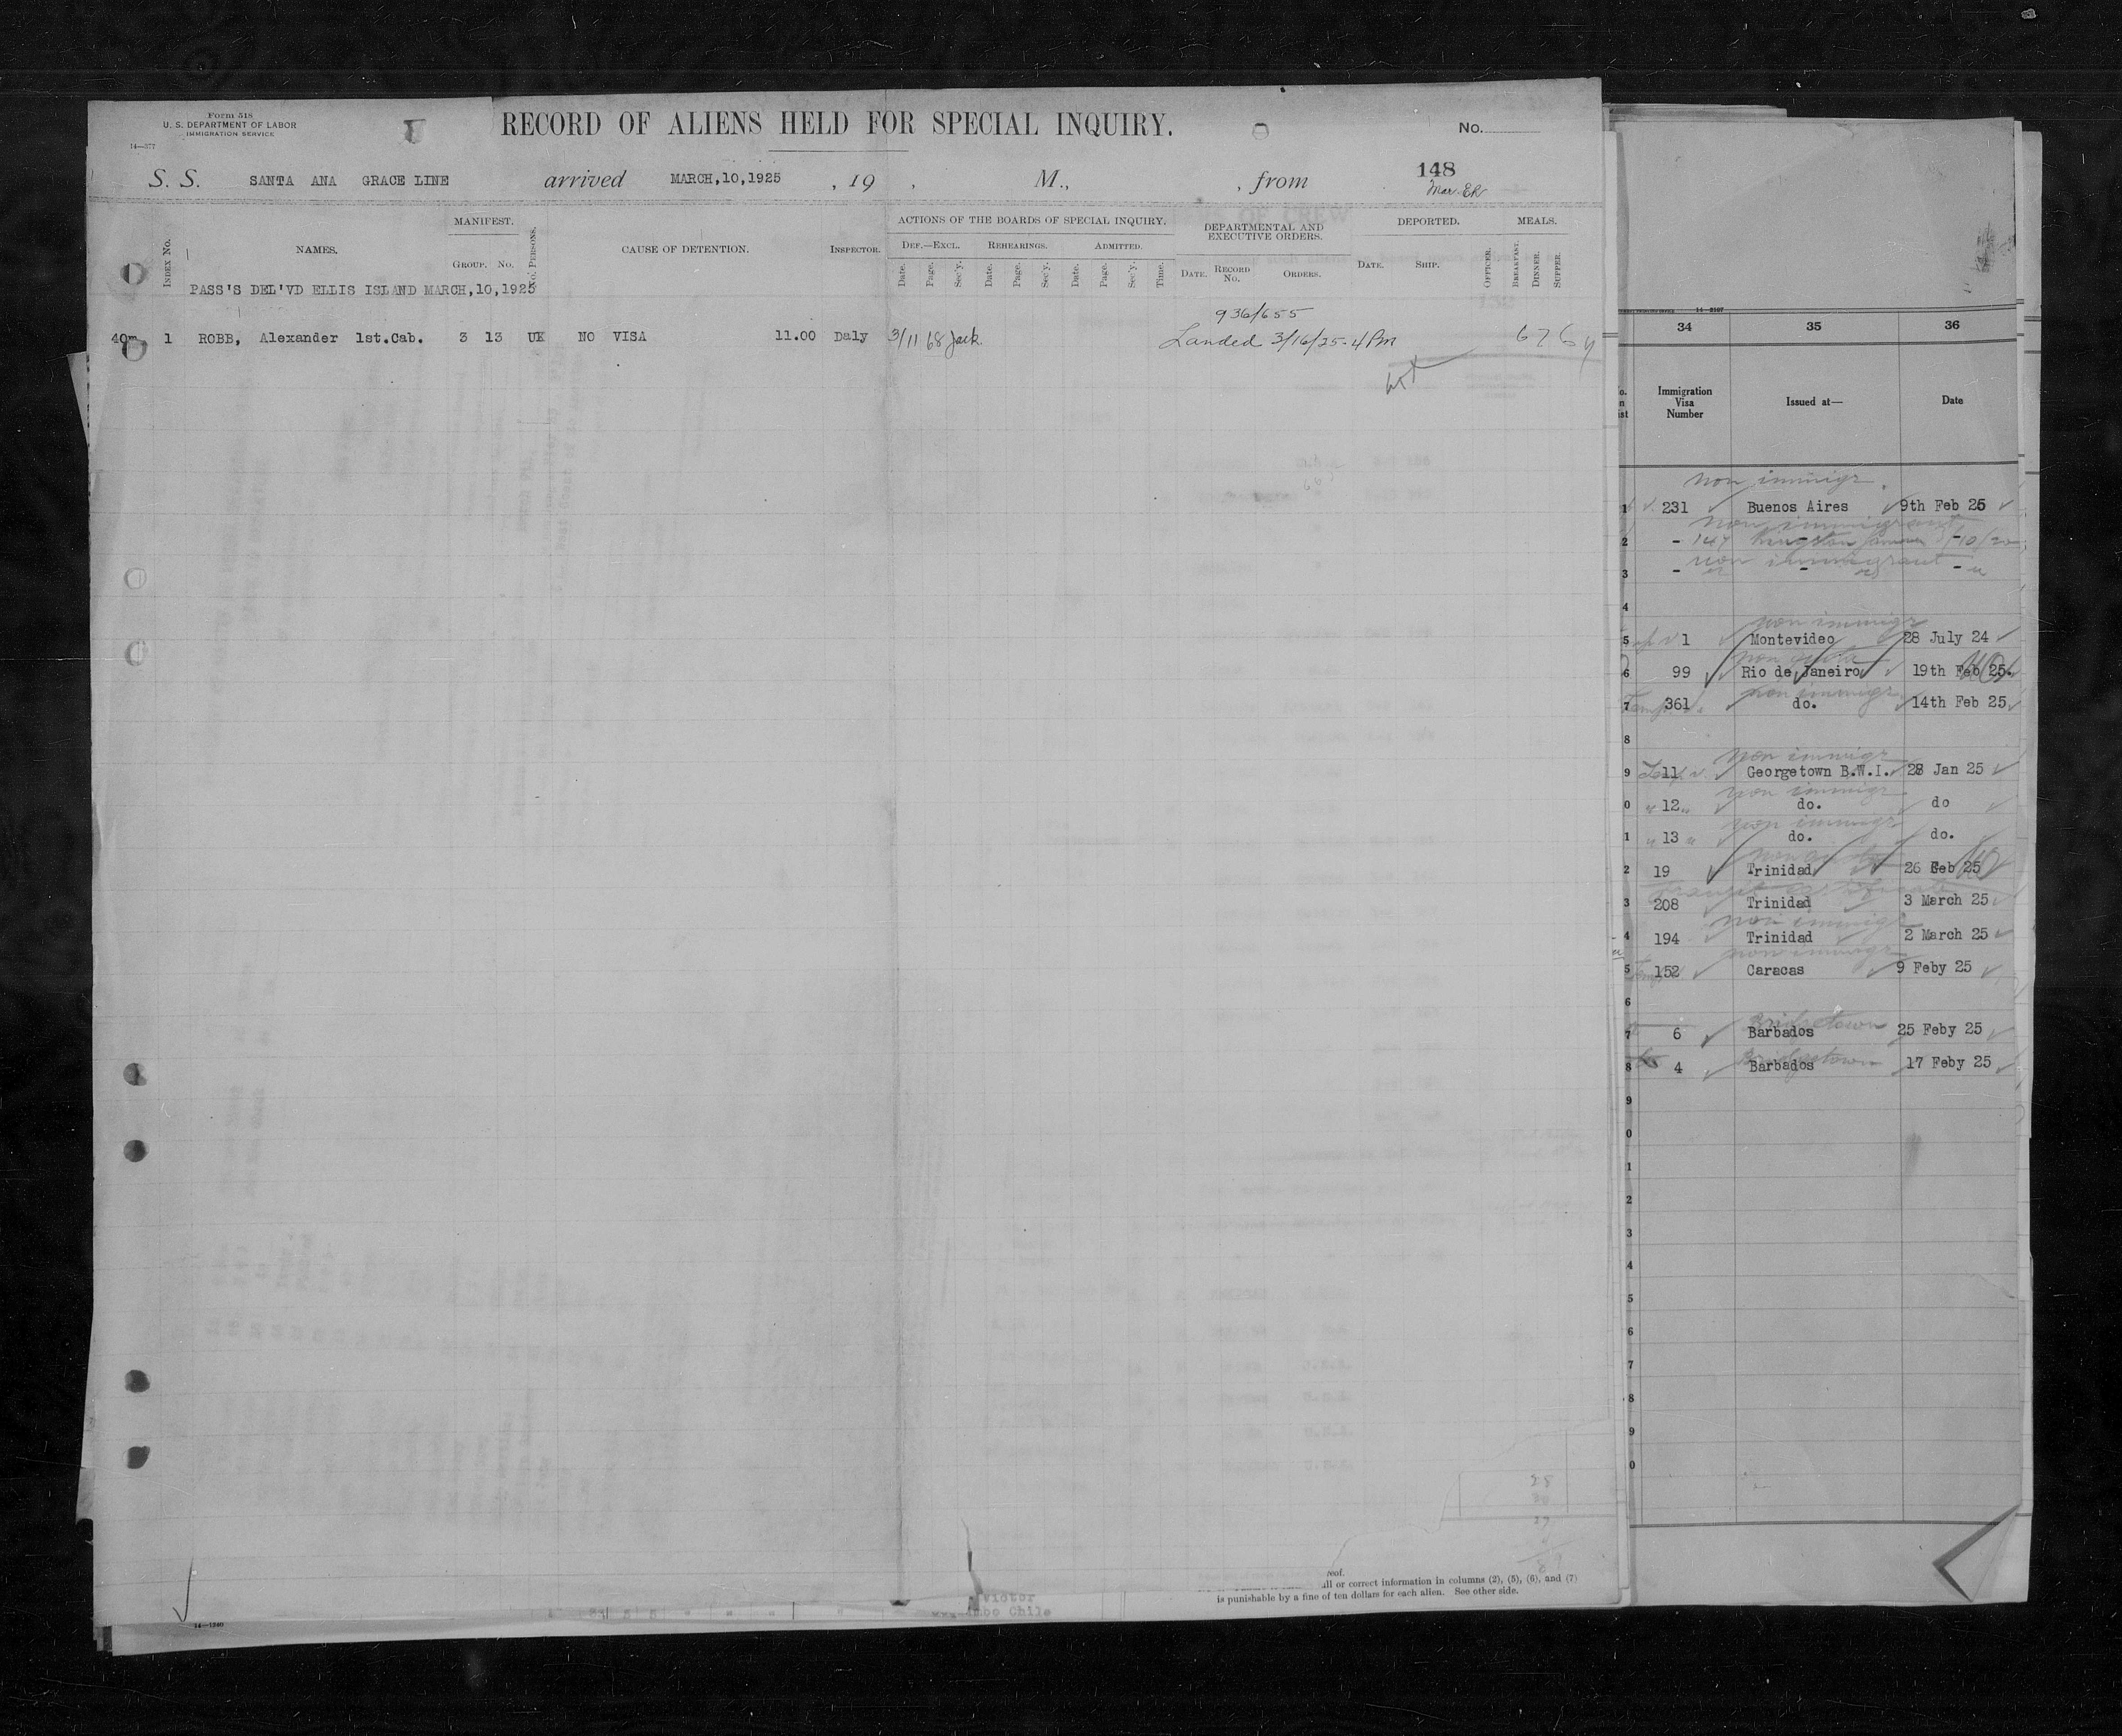 Form 518
U. S. DEPARTMENT OF LABOR
IMMIGRATION SERVICE
14—377
RECORD OF ALIENS HELD FOR SPECIAL INQUIRY.
No.
148
S. S. SANTA ANA GRACE LINE arrived MARCH,10,1925 , 19 , M., , from
INDEX No.
NAMES.
MANIFEST.
GROUP. No.
No. PERSONS.
CAUSE OF DETENTION.
INSPECTOR.
ACTIONS OF THE BOARDS OF SPECIAL INQUIRY.
DEF.—EXCL. REHEARINGS. ADMITTED.
Date. Page. Sec'y. Date. Page. Sec'y. Date. Page. Sec'y. Time.
DEPARTMENTAL AND
EXECUTIVE ORDERS.
DATE. RECORD No. ORDERS.
DEPORTED.
DATE. SHIP. OFFICER.
MEALS.
BREAKFAST. DINNER. SUPPER.
PASS'S DEL'VD ELLIS ISLAND MARCH,10,1925
936/655
40m 1 ROBB, Alexander 1st.Cab. 3 13 UK NO VISA 11.00 Daly 3/11 68 Jack Landed 3/16/25-4 Pm 6 7 6
all or correct information in columns (2), (5), (6), and (7)
is punishable by a fine of ten dollars for each alien. See other side.
Victor
Chile
14—1240
34 35 36
Immigration
Visa
Number
Issued at—
Date
non immigr
1 231 Buenos Aires 9th Feb 25
non immigrant
2 - 147 Kingston Jamaica
non immigrant
3 - - -
4
non immigr
5 1 Montevideo 28 July 24
non quota
6 99 Rio de Janeiro 19th Feb 25.
non immigr
7 361 do. 14th Feb 25
8
non immigr
9 11 Georgetown B.W.I. 28 Jan 25
non immigr
0 12 do. do
non immigr
1 13 do. do.
2 19 Trinidad 26 Feb 25
3 208 Trinidad 3 March 25
non immigr
4 194 Trinidad 2 March 25
non immigr
5 152 Caracas 9 Feby 25
6
Bridgetown
7 6 Barbados 25 Feby 25
Bridgetown
8 4 Barbados 17 Feby 25
9
0
1
2
3
4
5
6
7
8
9
0